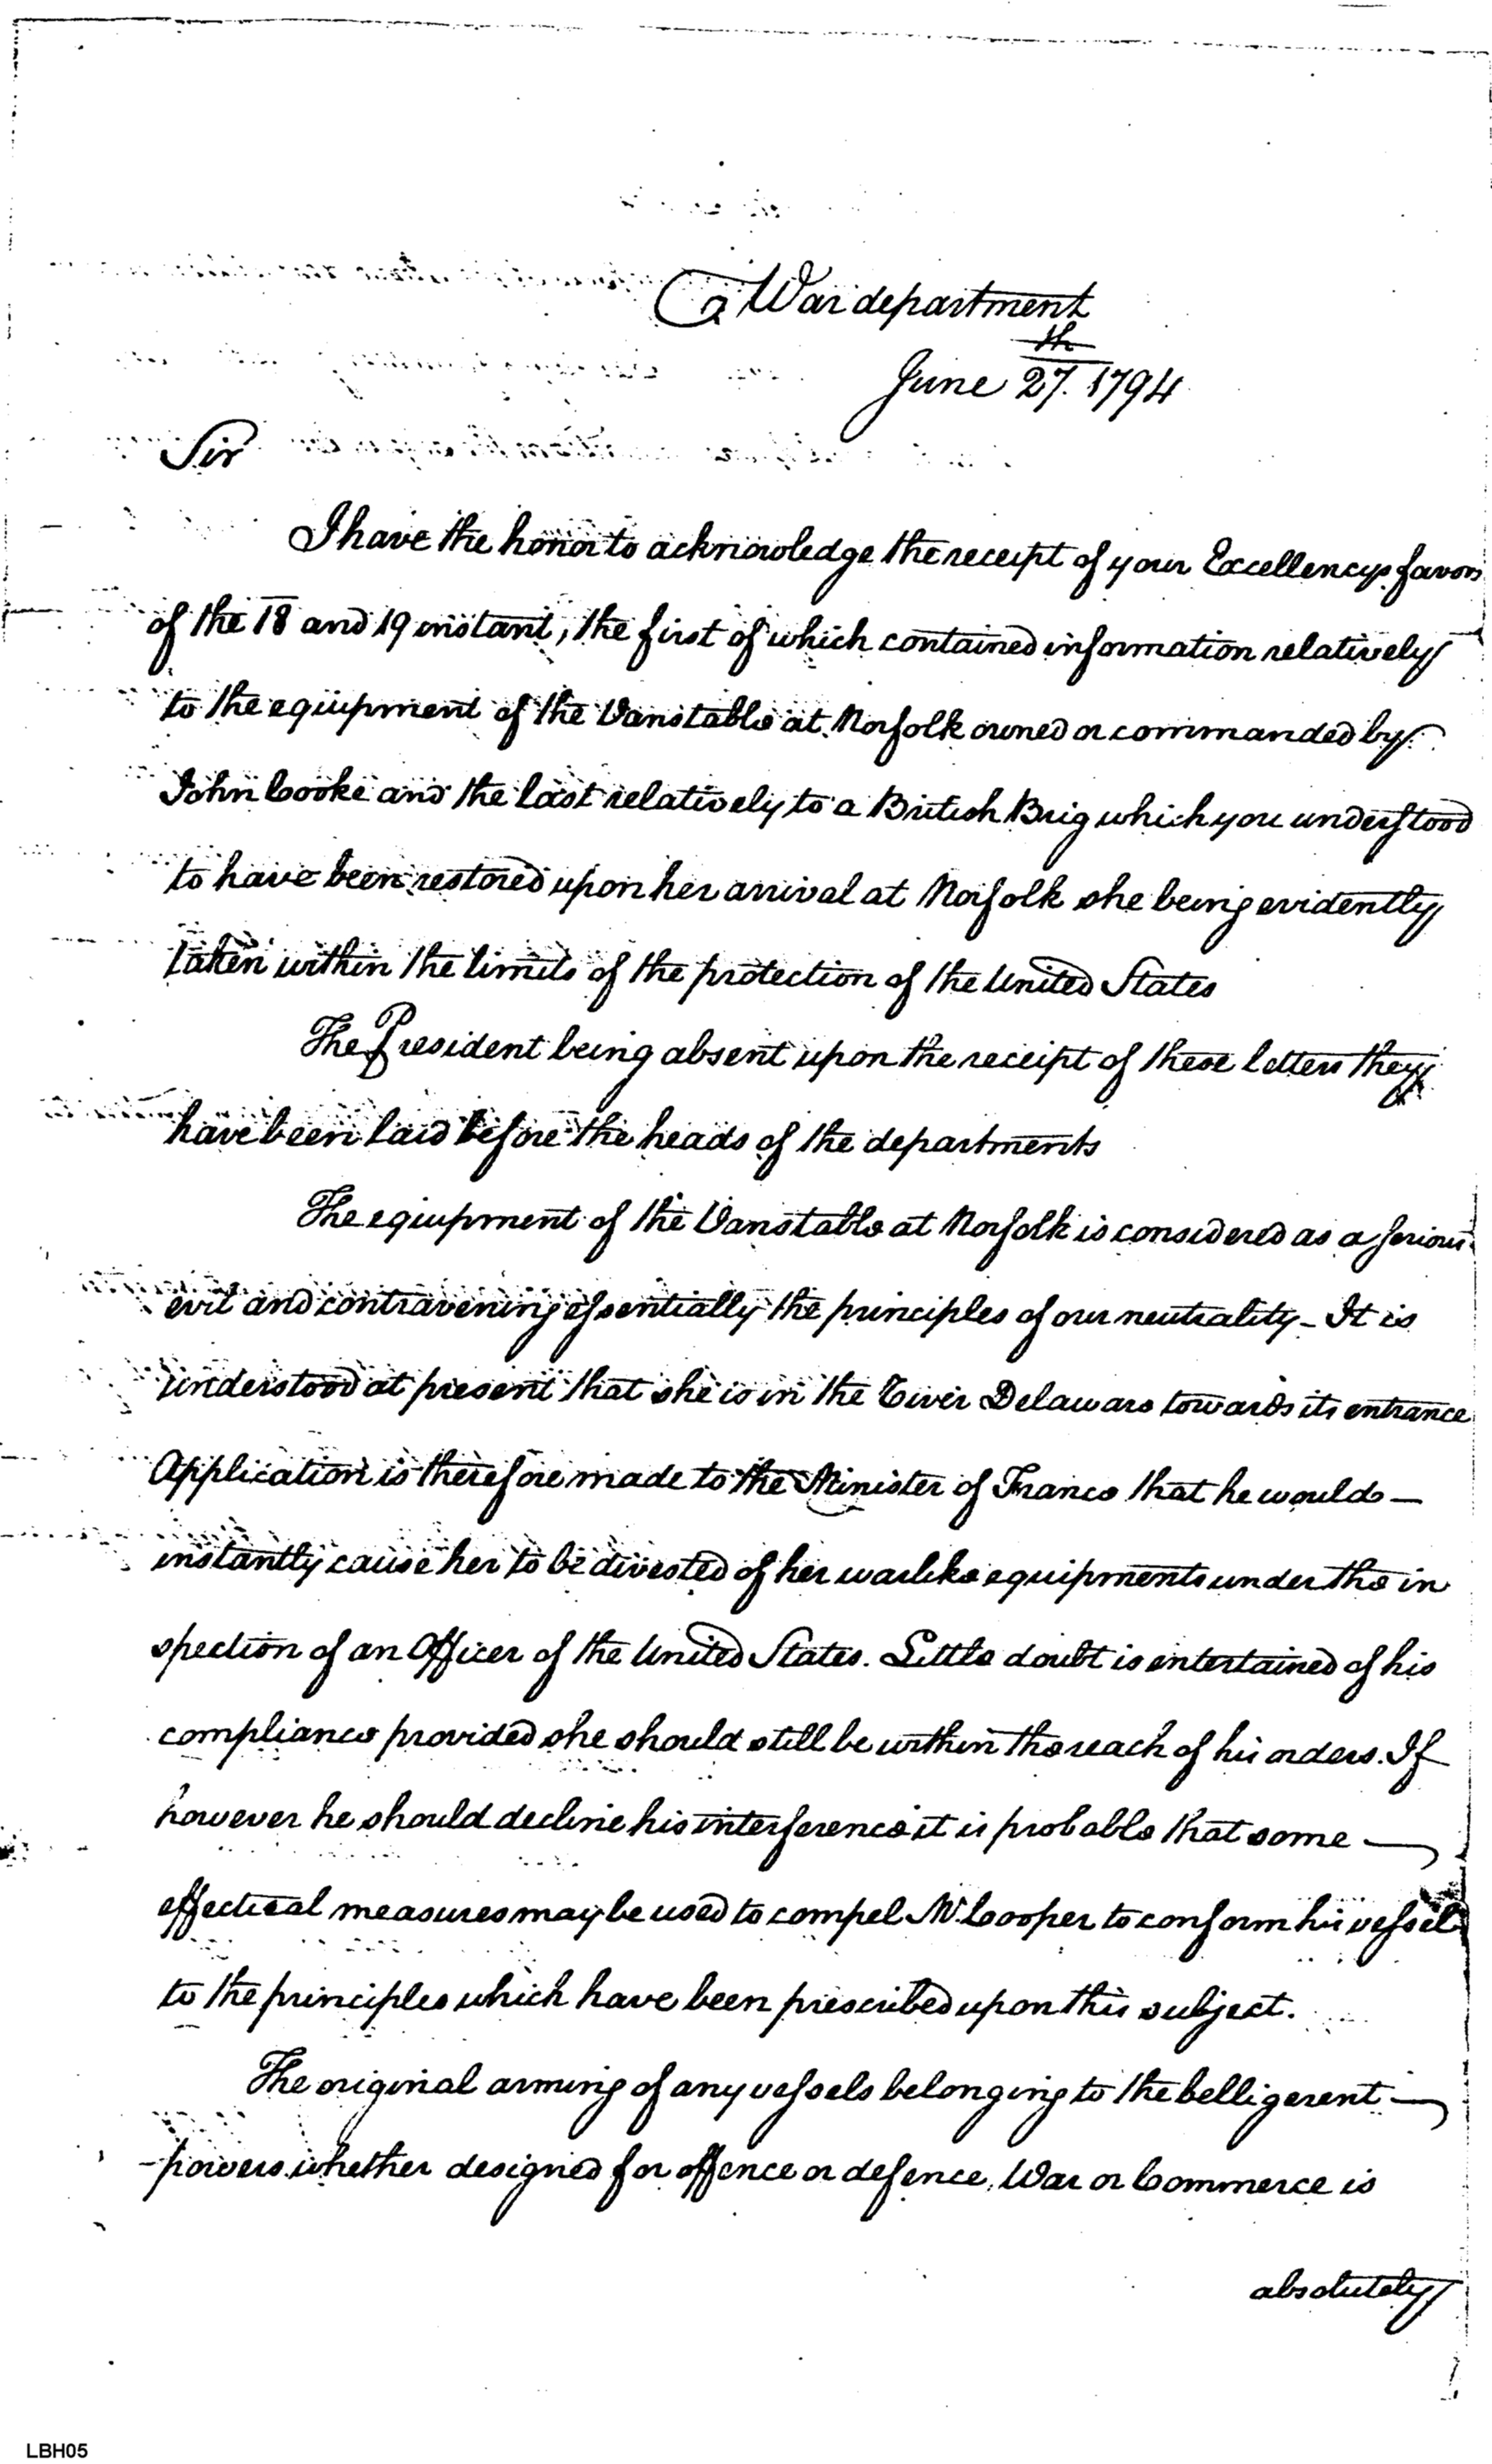 War department
June 27.th 1794
Sir
I have the honor to acknowledge the receipt of your Excellencys favors
of the 18 and 19 instant, the first of which contained information relatively
to the equipment of the Vanstable at Norfolk owned or commanded by
John Cooke and the last relatively to a British Brig which you understood
to have been restored upon her arrival at Norfolk she being evidently
taken within the limits of the protection of the United States
The President being absent upon the receipt of these letters they
have been laid before the heads of the departments
The equipment of the Vanstable at Norfolk is considered as a serious
evil and contravening essentially the principles of our neutrality – It is
understood at present that she is in the River Delaware towards its entrance
Application is therefore made to the Minister of France that he would –
instantly cause her to be divested of her warlike equipments under the in
spection of an Officer of the United States. Little doubt is entertained of his
compliance provided she should still be within the reach of his orders. If
however he should decline his interference it is probable that some —
effectual measures may be used to compel Mr. Cooper to conform his vessel
to the principles which have been prescribed upon this subject.
The original arming of any vessels belonging to the belligerent —
powers whether designed for offence or defence, War or Commerce is
absolutely
LBH05